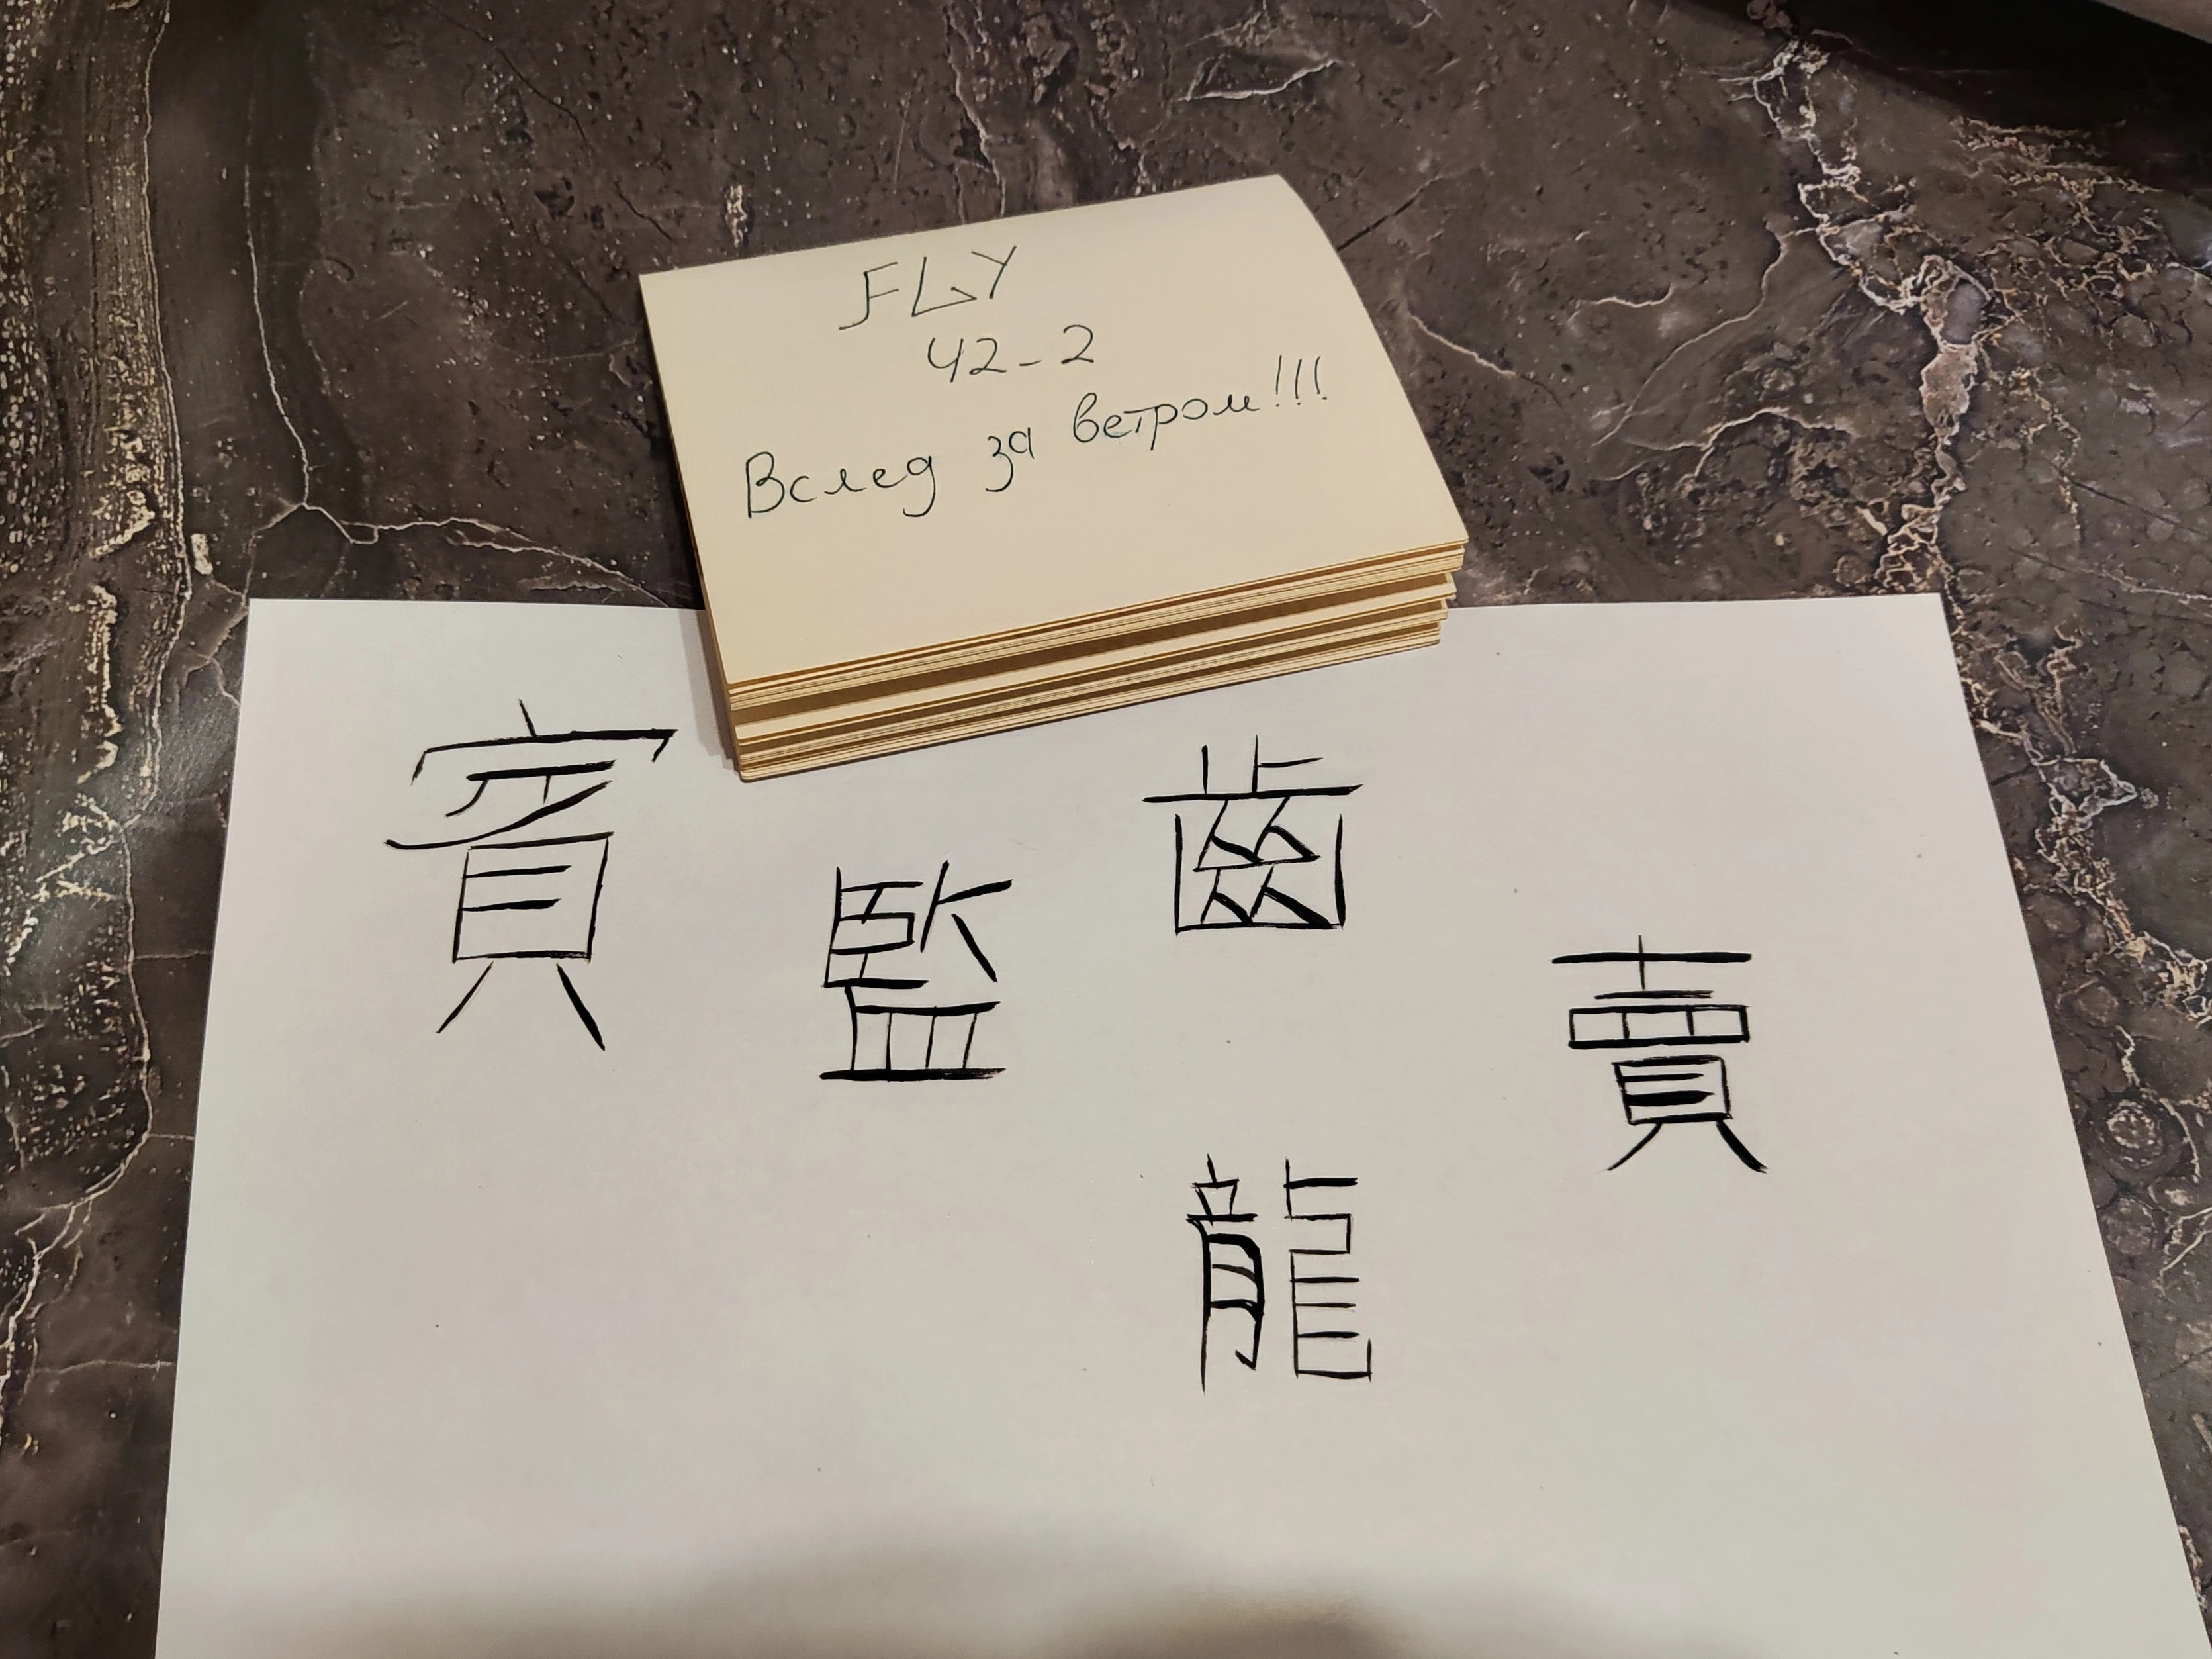 FLY
42-2
Вслед за ветром!!!
賓
監
齒
賣
龍